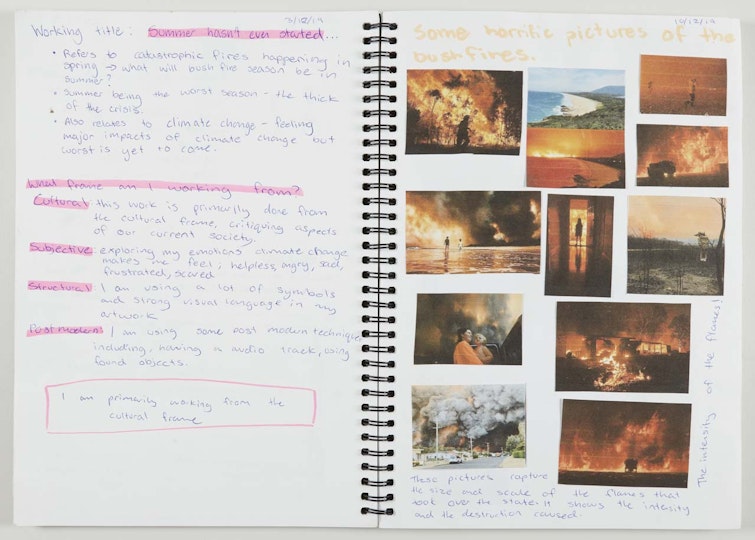 3/12/19
Working title: Summer hasn't even started...
• Refers to catastrophic fires happening in
spring → what will bushfire season be in
summer?
• Summer being the worst season - the thick
of the crisis.
• Also relates to climate change - feeling
major impacts of climate change but
worst is yet to come.
What frame am I working from?
Cultural this work is primarily done from
the cultural frame, critiquing aspects
of our current society.
Subjective exploring my emotions climate change
makes me feel; helpless, angry, sad,
frustrated, scared
Structural I am using a lot of symbols
and strong visual language in my
artwork
Post modern I am using some post modern techniques
including, having a audio track, using
found objects.
I am primarily working from the
cultural frame
10/12/19
Some horrific pictures of the
bushfires.
The intensity of the flames!
These pictures capture
the size and scale of the flames that
took over the state. It shows the intensity
and the destruction caused.